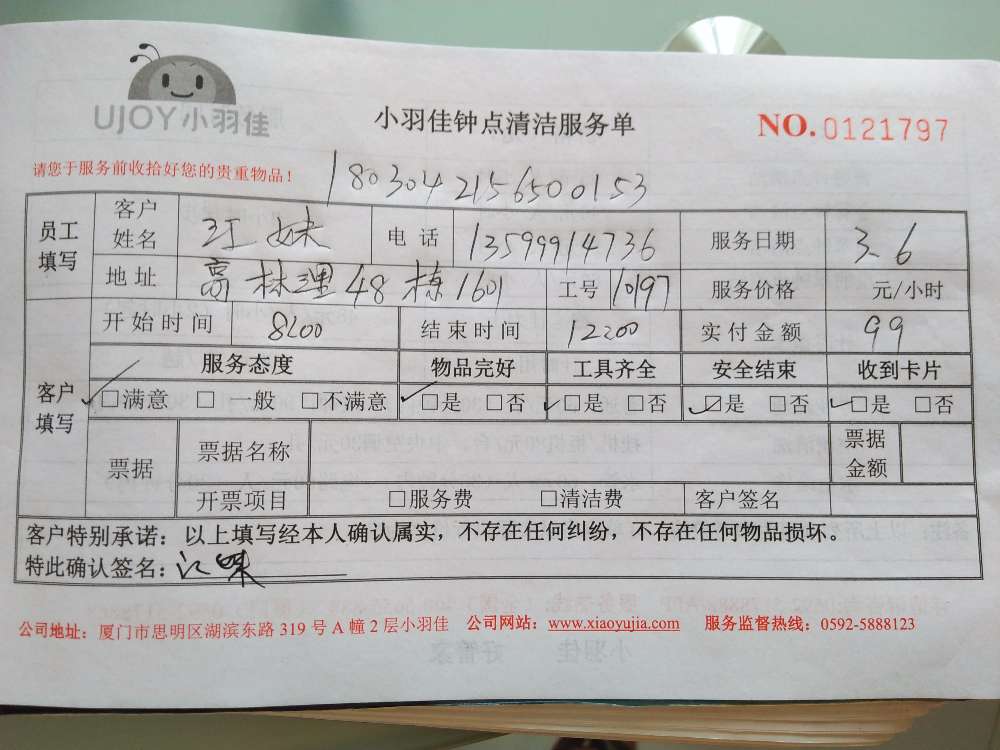 UJOY小羽佳
小羽佳钟点清洁服务单
NO.0121797
请您于服务前收拾好您的贵重物品!
1803042156500153
员工填写 客户姓名 江妹 电话 13599914736 服务日期 3.6
地址 高林理48栋1601 工号 10197 服务价格 元/小时
开始时间 8:00 结束时间 12:00 实付金额 99
客户填写 服务态度 物品完好 工具齐全 安全结束 收到卡片
☑满意 □一般 □不满意 ☑是 □否 ☑是 □否 ☑是 □否 ☑是 □否
票据 票据名称 票据金额
开票项目 □服务费 □清洁费 客户签名
客户特别承诺:以上填写经本人确认属实,不存在任何纠纷,不存在任何物品损坏。
特此确认签名:江妹
公司地址:厦门市思明区湖滨东路319号A幢2层小羽佳 公司网站:www.xiaoyujia.com 服务监督热线:0592-5888123